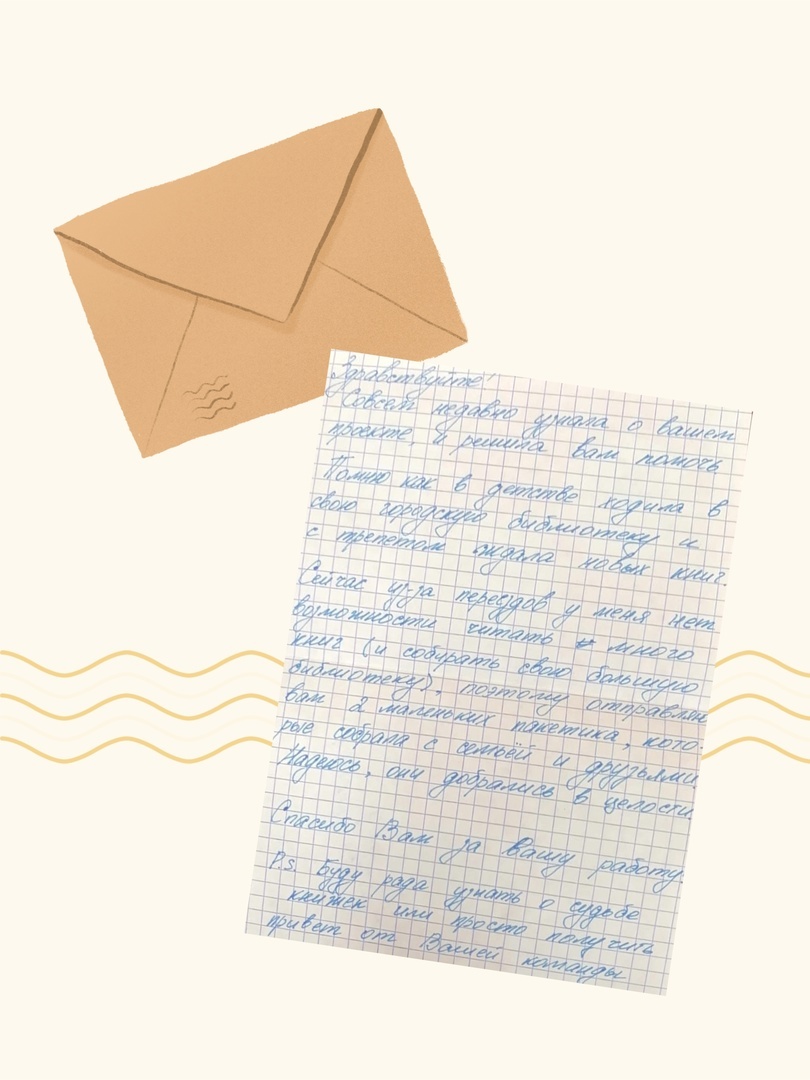 Здравствуйте!
Совсем недавно узнала о вашем
проекте, и решила вам помочь.
Помню как в детстве ходила в
свою городскую библиотеку и
с трепетом ждала новых книг.
Сейчас из-за переездов у меня нет
возможности читать много
книг (и собирать свою большую
библиотеку), поэтому отправляю
вам 2 маленьких пакетика, кото-
рые собрала с семьёй и друзьями.
Надеюсь, они добрались в целости.
Спасибо Вам за Вашу работу.
P.s. Буду рада узнать о судьбе
книжек или просто получить
привет от Вашей команды